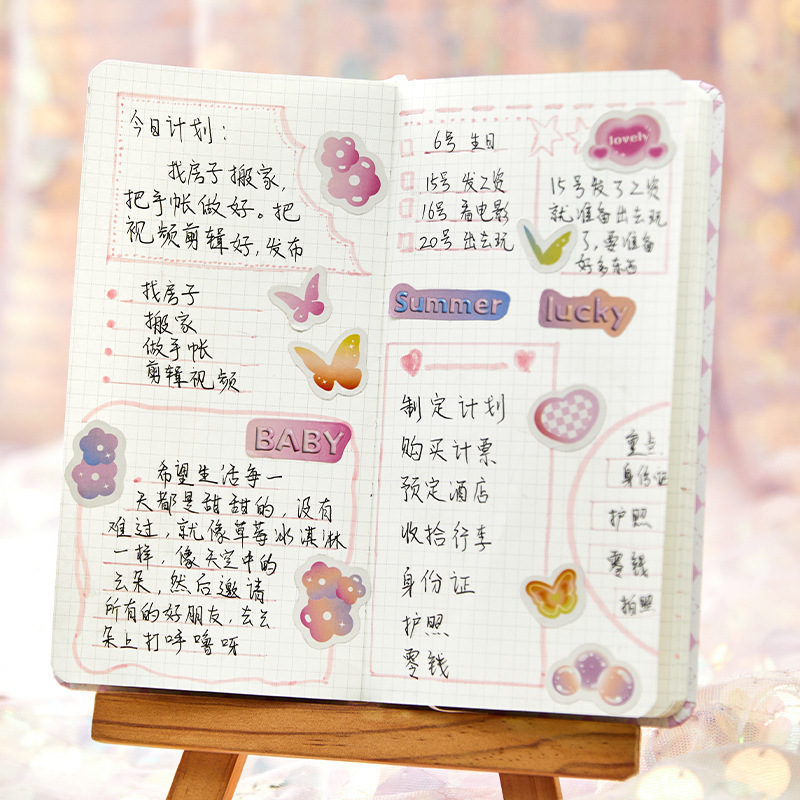 今日计划：
找房子搬家，
把手帐做好。把
视频剪辑好，发布
找房子
搬家
做手帐
剪辑视频
BABY
希望生活每一
天都是甜甜的，没有
难过，就像草莓冰淇淋
一样，像天空中的
云朵，然后邀请
所有的好朋友，去云
朵上打呼噜呀
6号 生日
15号 发工资
16号 看电影
20号 出去玩
lovely
15号发了工资
就准备出去玩
了，要准备
好多东西
Summer
lucky
制定计划
购买计票
预定酒店
收拾行李
身份证
护照
零钱
重点
身份证
护照
零钱
拍照